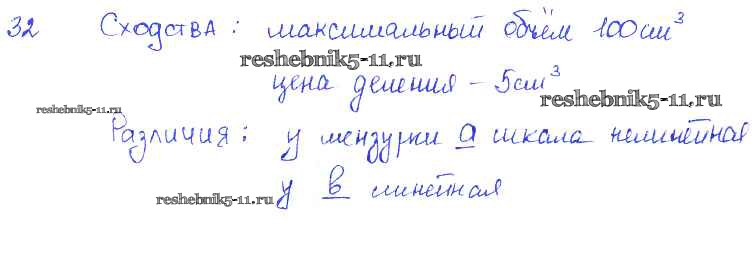 32 Сходства: максимальный объём 100 см³
reshebnik5-11.ru
цена деления - 5 см³
reshebnik5-11.ru
reshebnik5-11.ru
Различия: у мензурки а шкала нелинейная
у в линейная
reshebnik5-11.ru